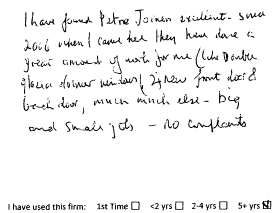 I have found Petone Joiners excellent - since
2006 when I came here they have done a
great amount of work for me (like Double
glazed dormer windows, 2 new front doors &
back door, much much else - big
and small jobs - no complaints
I have used this firm: 1st Time ☐ <2 yrs ☐ 2-4 yrs ☐ 5+ yrs ☒